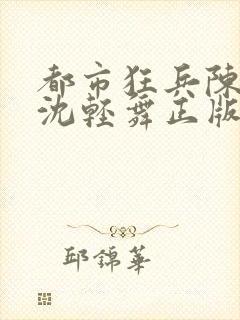 都市狂兵陳
沈輕舞正版
邱錦華